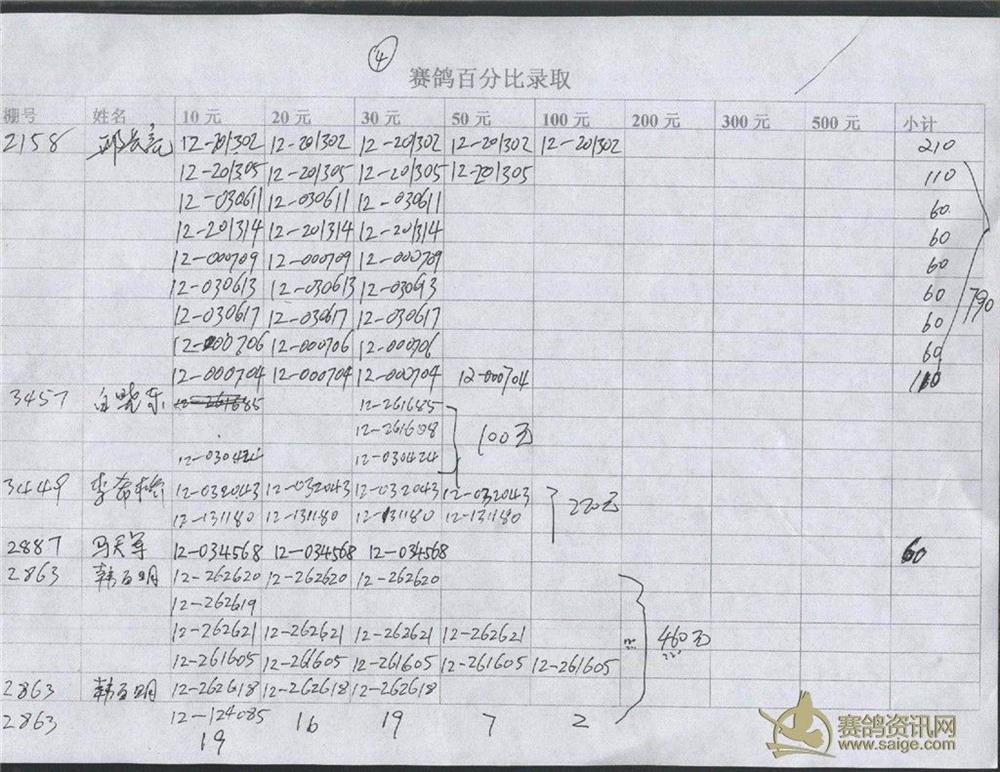 4
赛鸽百分比录取
棚号 姓名 10元 20元 30元 50元 100元 200元 300元 500元 小计
2158 12-201302 12-201302 12-201302 12-201302 12-201302 210
12-201305 12-201305 12-201305 12-201305 110
12-030611 12-030611 12-030611 60
12-201314 12-201314 12-201314 60
12-000709 12-000709 12-000709 60
12-030613 12-030613 12-030613 60
12-030617 12-030617 12-030617 60
12-000706 12-000706 12-000706 60
12-000704 12-000704 12-000704 12-000704 110
790
3457 12-261685 12-261685
12-261608
12-030424 12-030424
100元
3449 12-032043 12-032043 12-032043 12-032043
12-131180 12-131180 12-131180 12-131180
220元
2887 马天军 12-034568 12-034568 12-034568 60
2863 韩百明 12-262620 12-262620 12-262620
12-262619
12-262621 12-262621 12-262621 12-262621
12-261605 12-261605 12-261605 12-261605 12-261605
460元
2863 韩百明 12-262618 12-262618 12-262618
2863 12-124085 16 19 7 2
19
赛鸽资讯网
www.saige.com